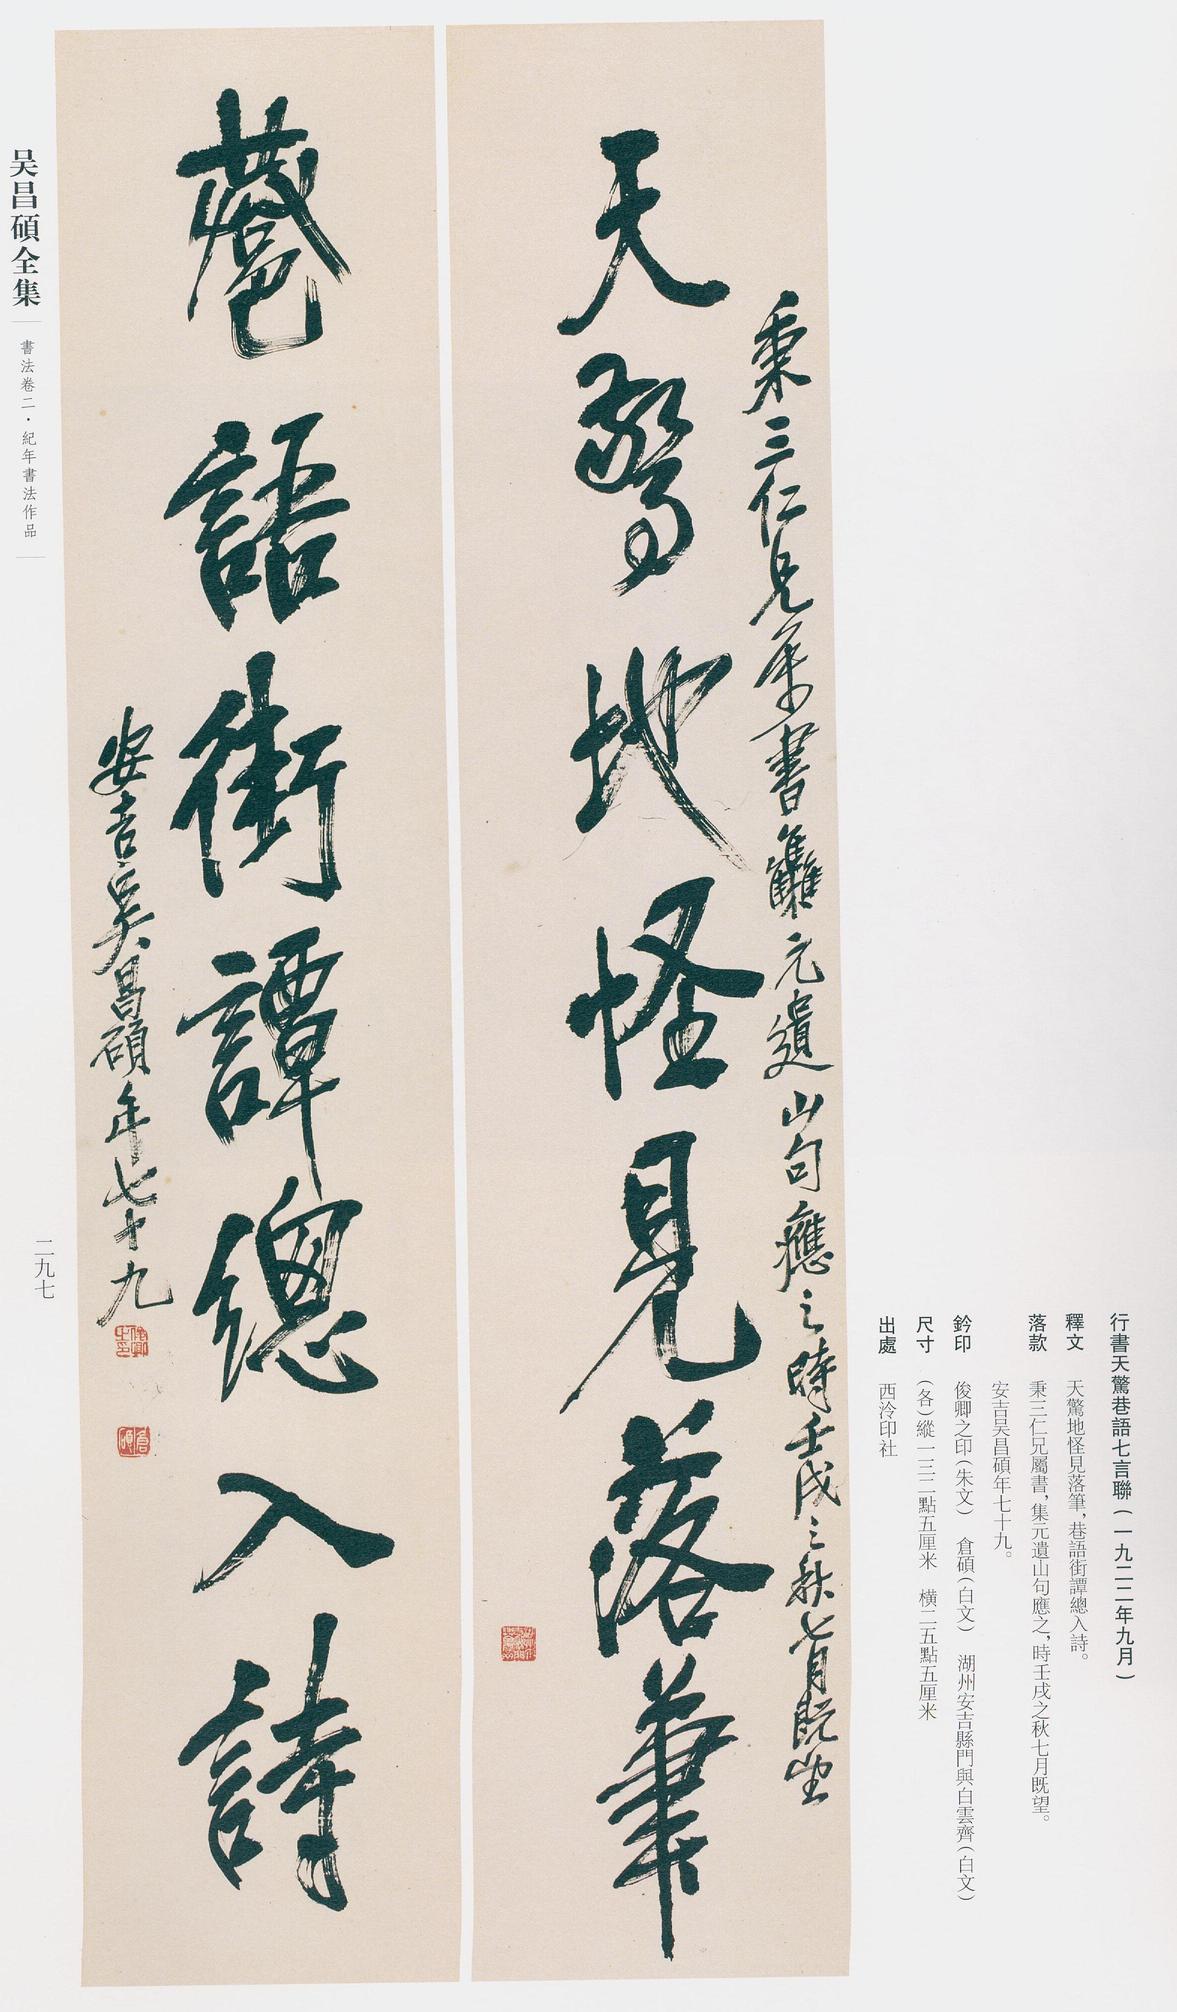 行書天驚巷語七言聯（一九二二年九月）
釋文　天驚地怪見落筆，巷語街譚總入詩。
落款　秉三仁兄屬書，集元遺山句應之，時壬戌之秋七月既望。
安吉吴昌碩年七十九。
鈐印　俊卿之印（朱文）　倉碩（白文）　湖州安吉縣門與白雲齊（白文）
尺寸　（各）縱一三二點五厘米　橫二五點五厘米
出處　西泠印社
秉三仁兄屬書集元遺山句應之時壬戌之秋七月既望
天驚地怪見落筆
巷語街譚總入詩
安吉吳昌碩年七十九
吴昌碩全集
書法卷二·紀年書法作品
二九七